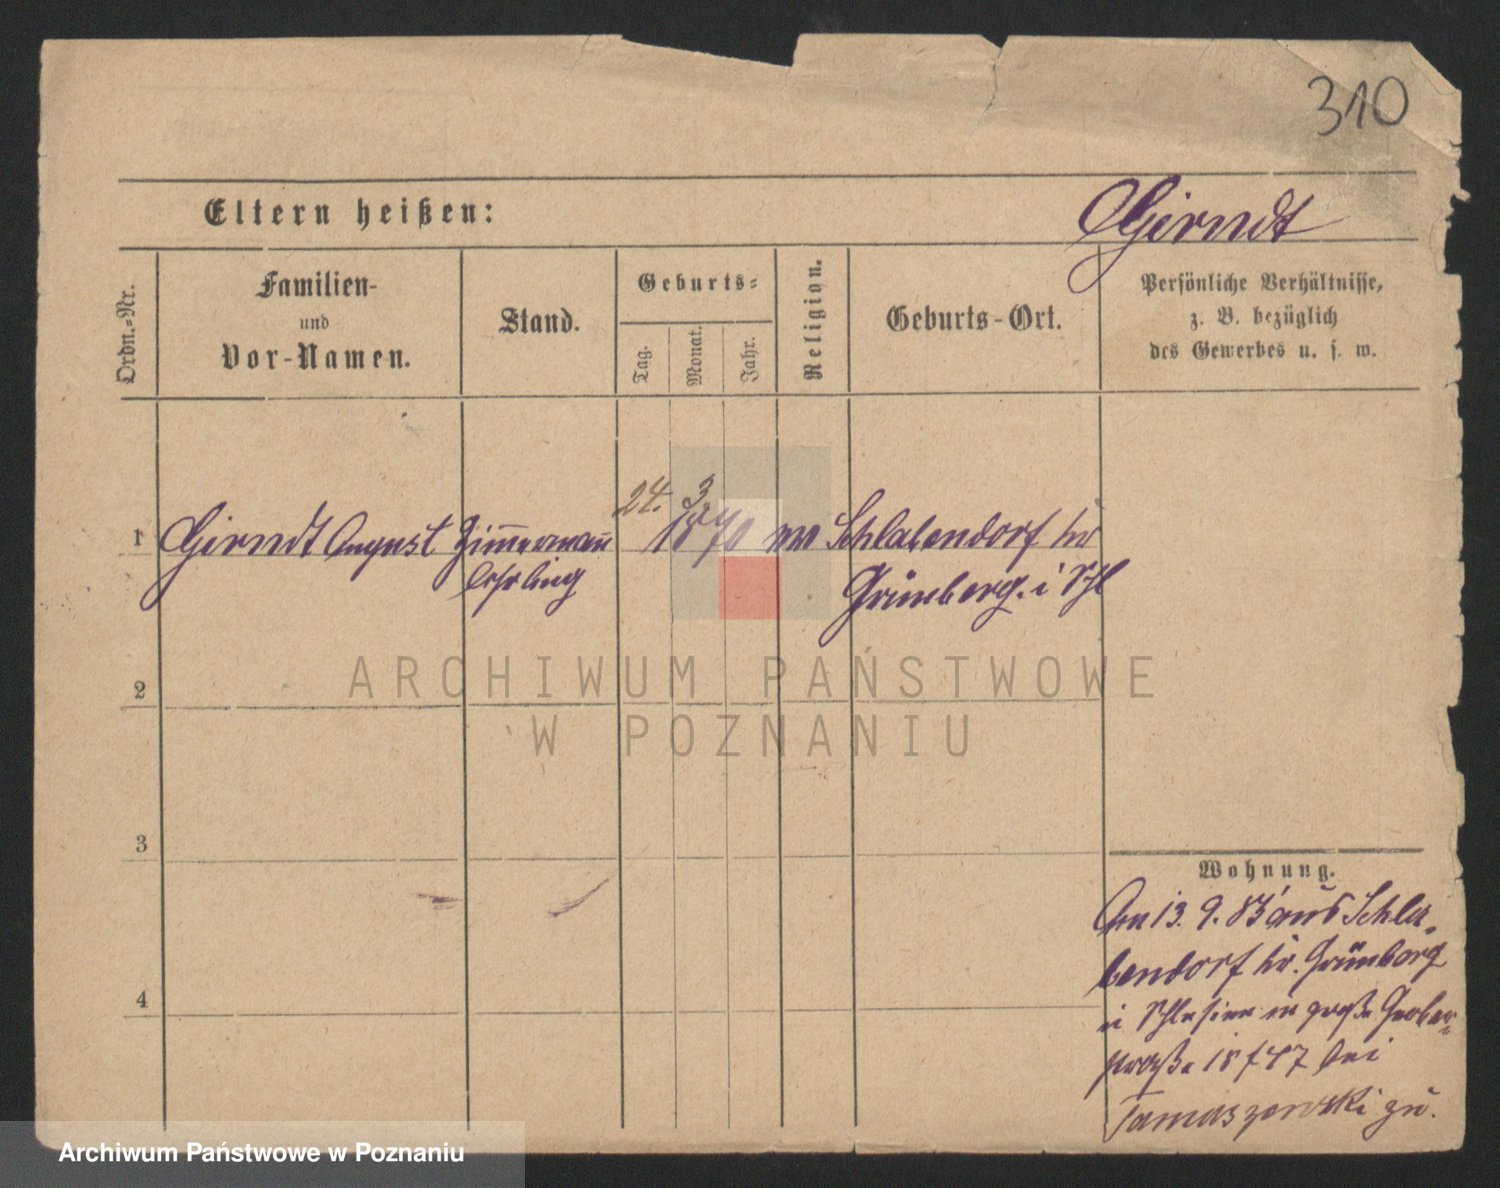 310
Eltern heißen:
Girndt
Ordn.-Nr.
Familien-
und
Vor-Namen.
Stand.
Geburts-
Tag.
Monat.
Jahr.
Religion.
Geburts-Ort.
Persönliche Verhältnisse,
z. B. bezüglich
des Gewerbes u. s. w.
1 Girndt August Zimmermann 24. 3 1870 Schlabendorf Kr
lehrling Grünberg. i Schl
2
3
4
Wohnung.
Am 13. 9. 83 aus Schla-
bendorf Kr. Grünberg
in Schlesien in große Gerber-
straße 18 bei
Tamaszewski zu.
ARCHIWUM PAŃSTWOWE
W POZNANIU
Archiwum Państwowe w Poznaniu